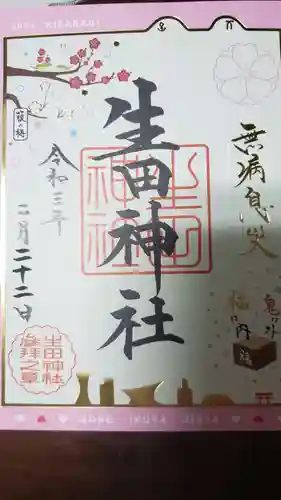 無病息災
鬼は外
福は内
福
生田神社
生田神社
令和三年
二月二十二日
箙の梅
生田神社
参拝之章
KOBE IKUTA JINJA